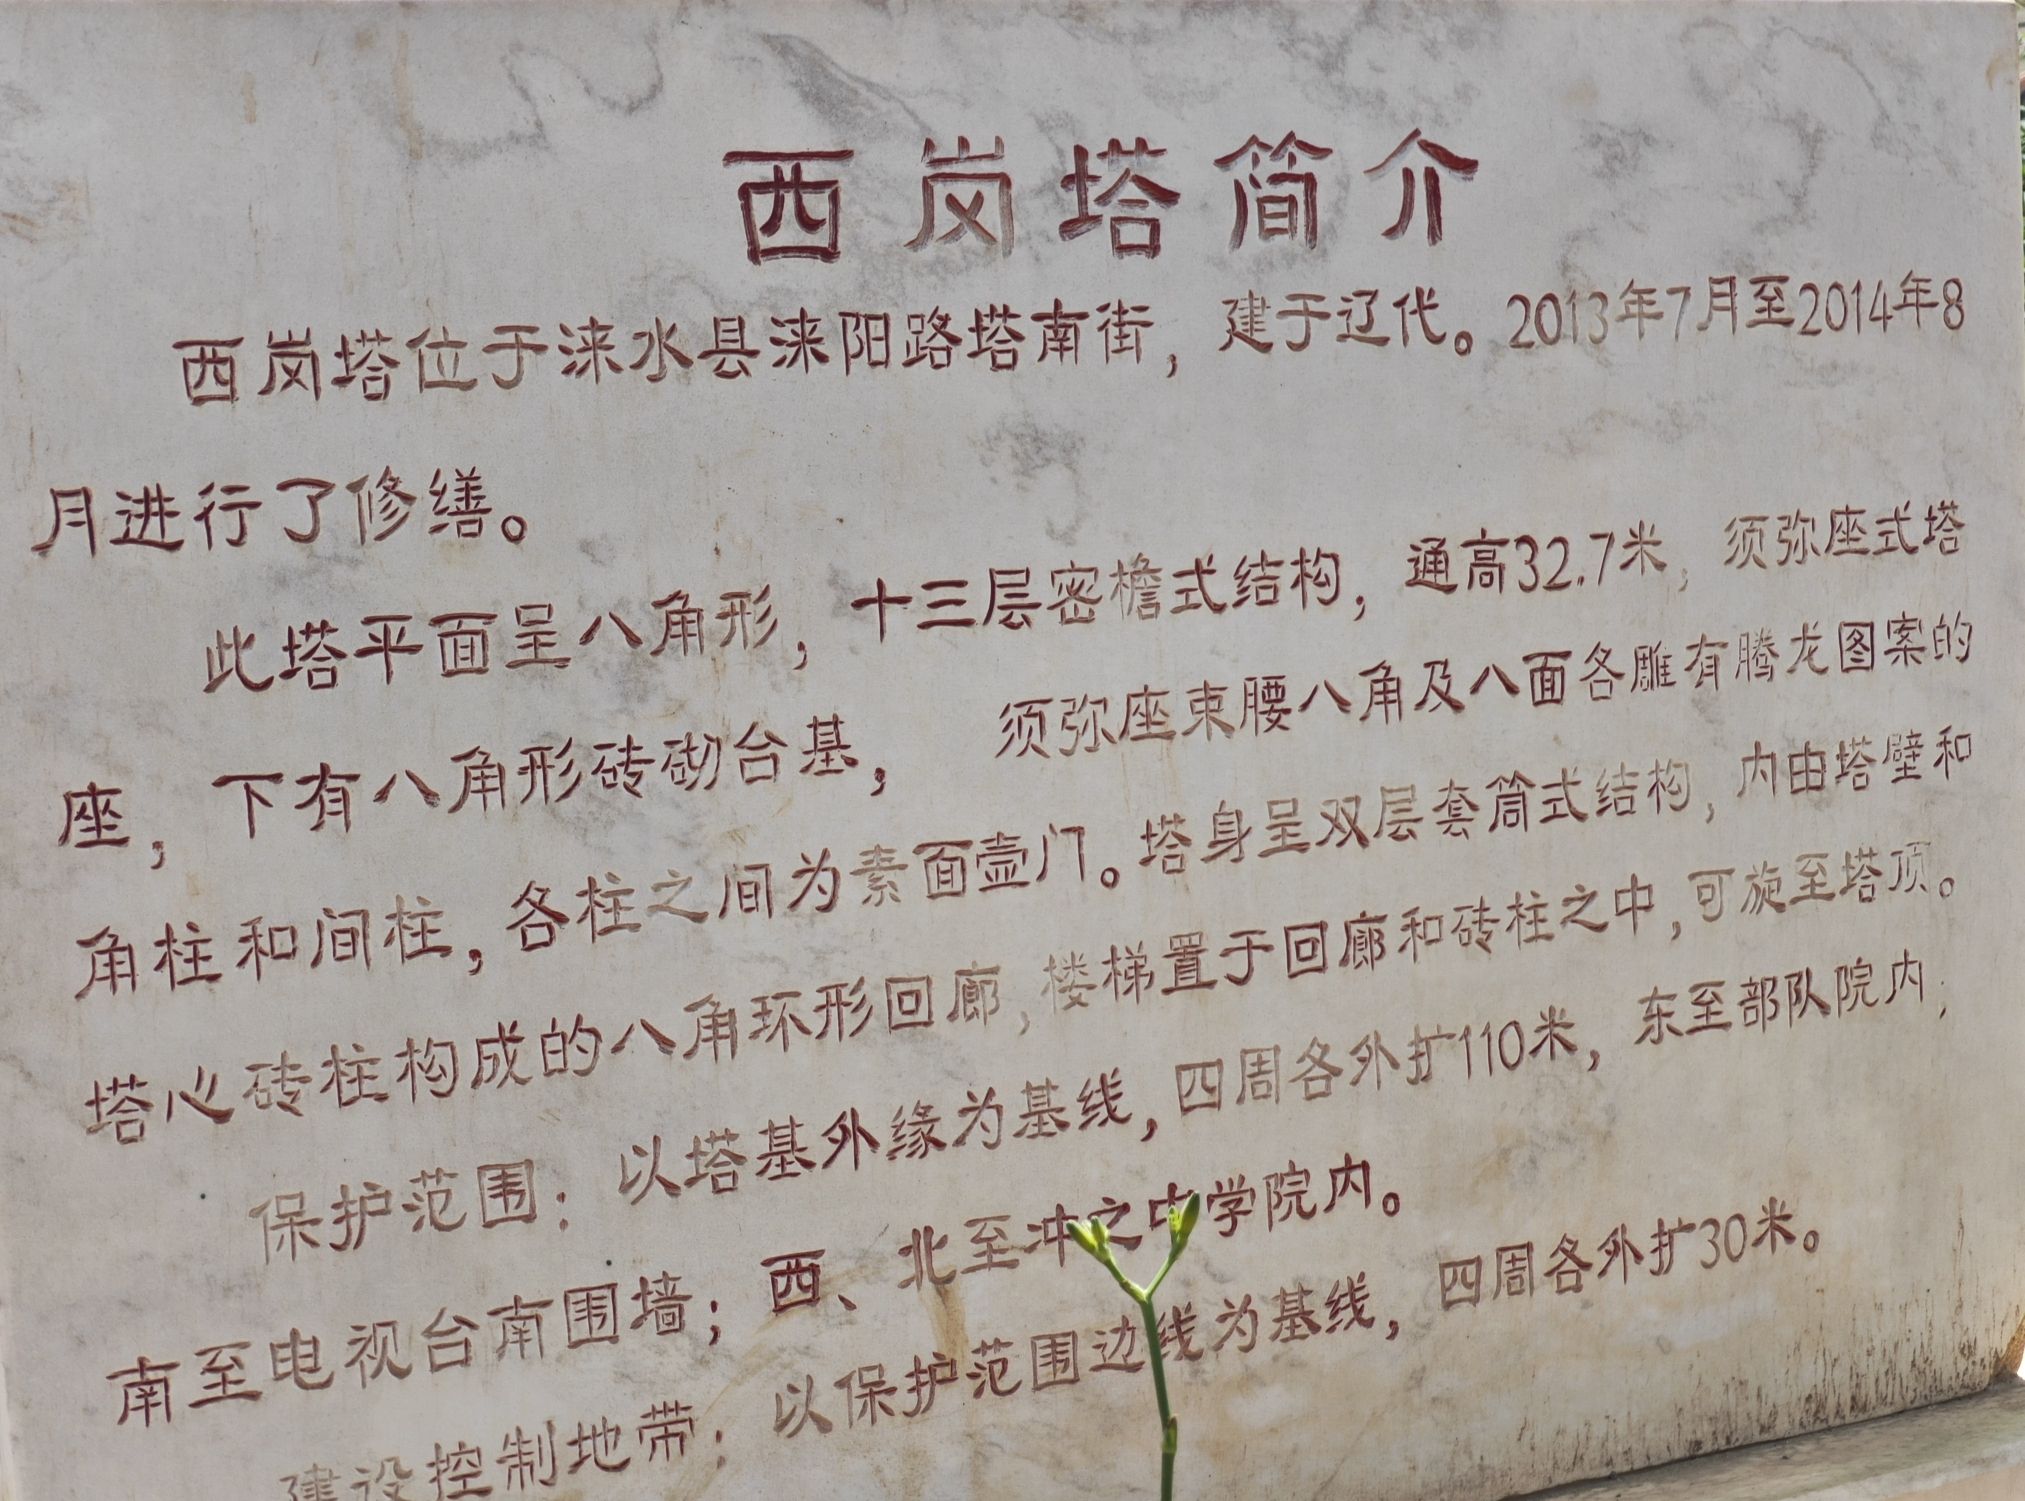 西岗塔简介
西岗塔位于涞水县涞阳路塔南街，建于辽代。2013年7月至2014年8
月进行了修缮。
此塔平面呈八角形，十三层密檐式结构，通高32.7米，须弥座式塔
座，下有八角形砖砌台基，须弥座束腰八角及八面各雕有腾龙图案的
角柱和间柱，各柱之间为素面壸门。塔身呈双层套筒式结构，内由塔壁和
塔心砖柱构成的八角环形回廊，楼梯置于回廊和砖柱之中，可旋至塔顶。
保护范围：以塔基外缘为基线，四周各外扩110米，东至部队院内；
南至电视台南围墙；西、北至冲之中学院内。
建设控制地带：以保护范围边线为基线，四周各外扩30米。